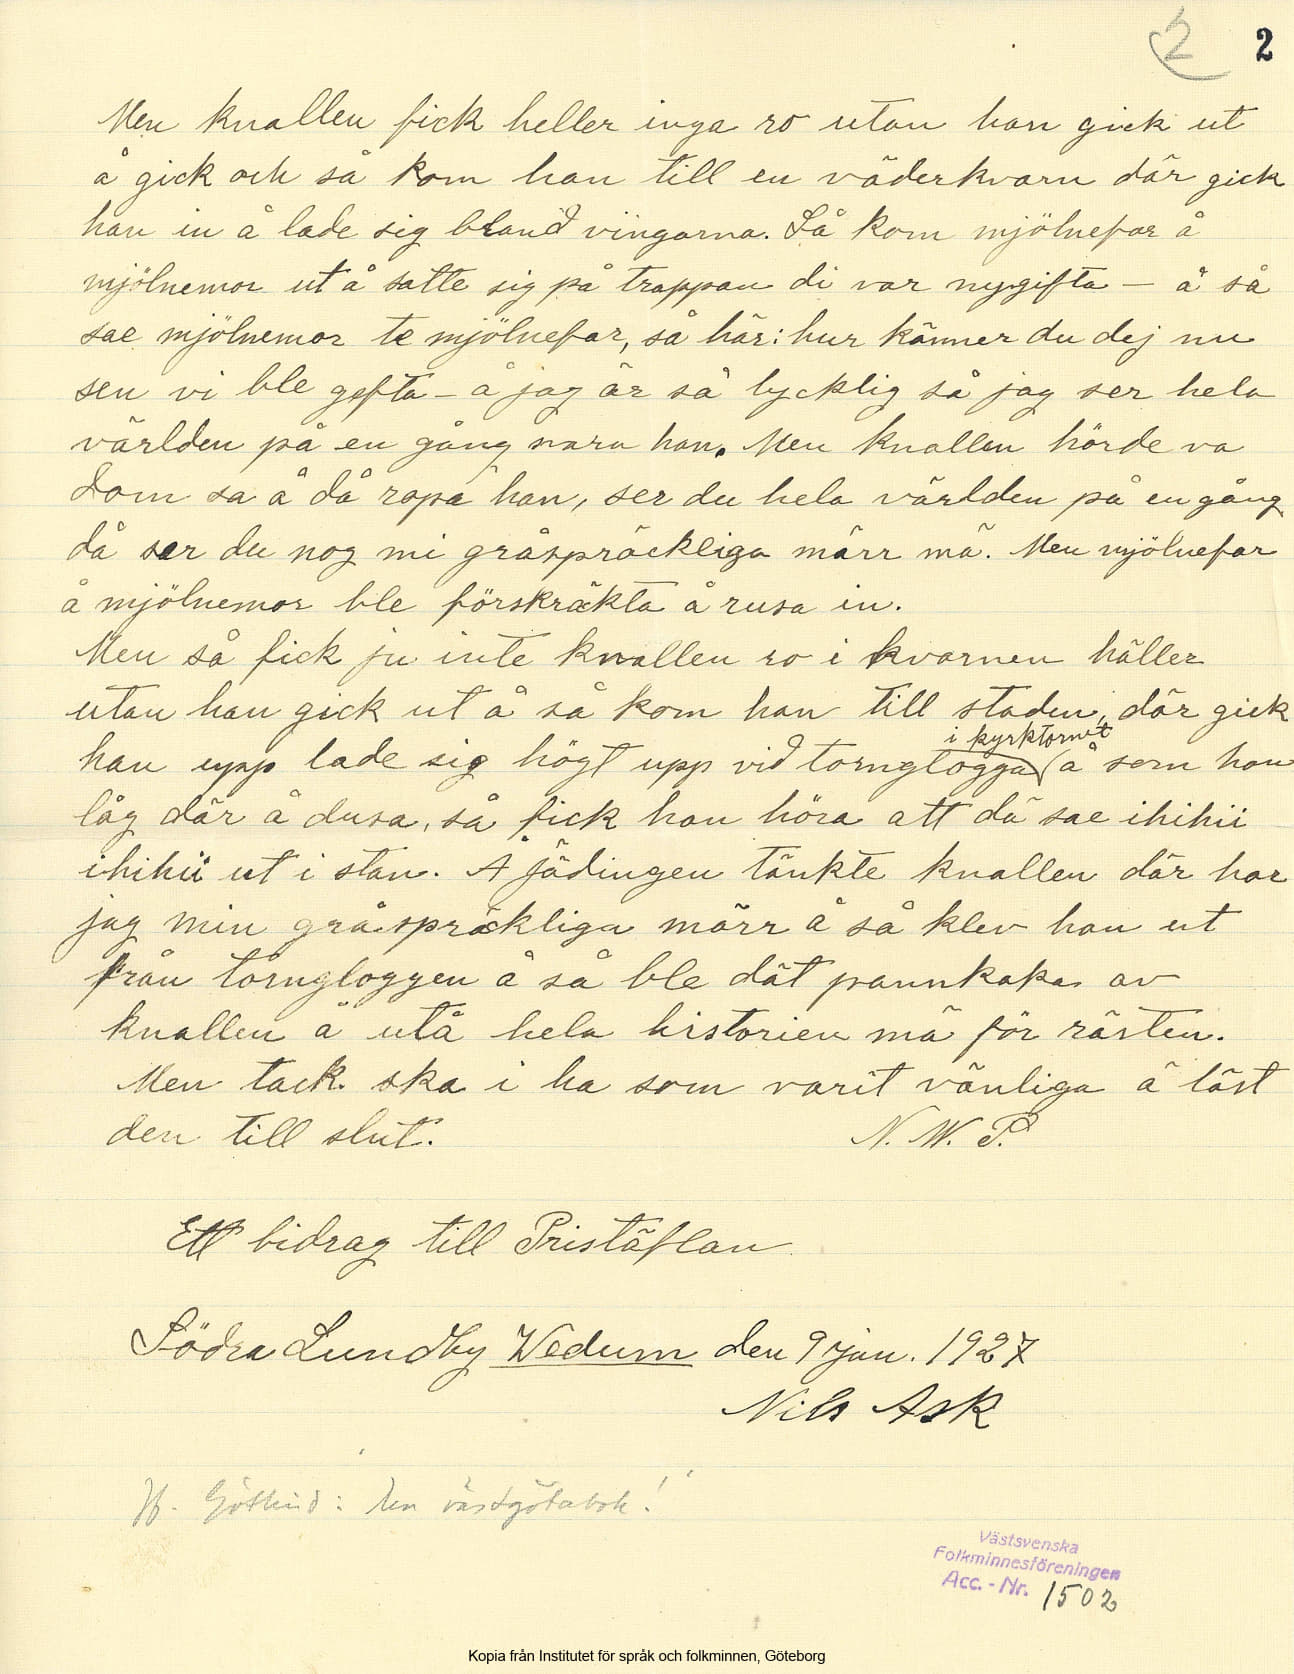 2 2
Men knallen fick heller inga ro utan han gick ut
å gick och så kom han till en väderkvarn där gick
han in å lade sig bland vingarna. Så kom mjölnefar å
mjölnemor ut å satte sig på trappan di var nygifta – å så
sae mjölnemor te mjölnefar, så här: hur känner du dej nu
sen vi ble gefta – å jag är så lycklig så jag ser hela
världen på en gång svara han. Men knallen hörde va
dom sa å då ropa han, ser du hela världen på en gång
då ser du nog mi gråspräckliga märr mä. Men mjölnefar
å mjölnemor ble förskräkta å rusa in.
Men så fick ju inte knallen ro i kvarnen häller
utan han gick ut å så kom han till staden, där gick
i kyrktornet
han upp lade sig högt upp vid torngloggа å som han
låg där å dusa, så fick han höra att dä sae ihihii
ihihii ut i stan. Å jädingen tänkte knallen där har
jag min gråspräckliga märr å så klev han ut
från torngloggen å så ble dät pannkaka av
knallen å utå hela historien mä för rästen.
Men tack ska i ha som varit vänliga å läst
den till slut. N. W. P.
Ett bidrag till Pristäflan
Södra Lundby Wedum den 9 jan. 1927
Nils Ask
Jfr. Götlind: den västgötabok!
Västsvenska
Folkminnesföreningen
Acc. - Nr. 1502
Kopia från Institutet för språk och folkminnen, Göteborg